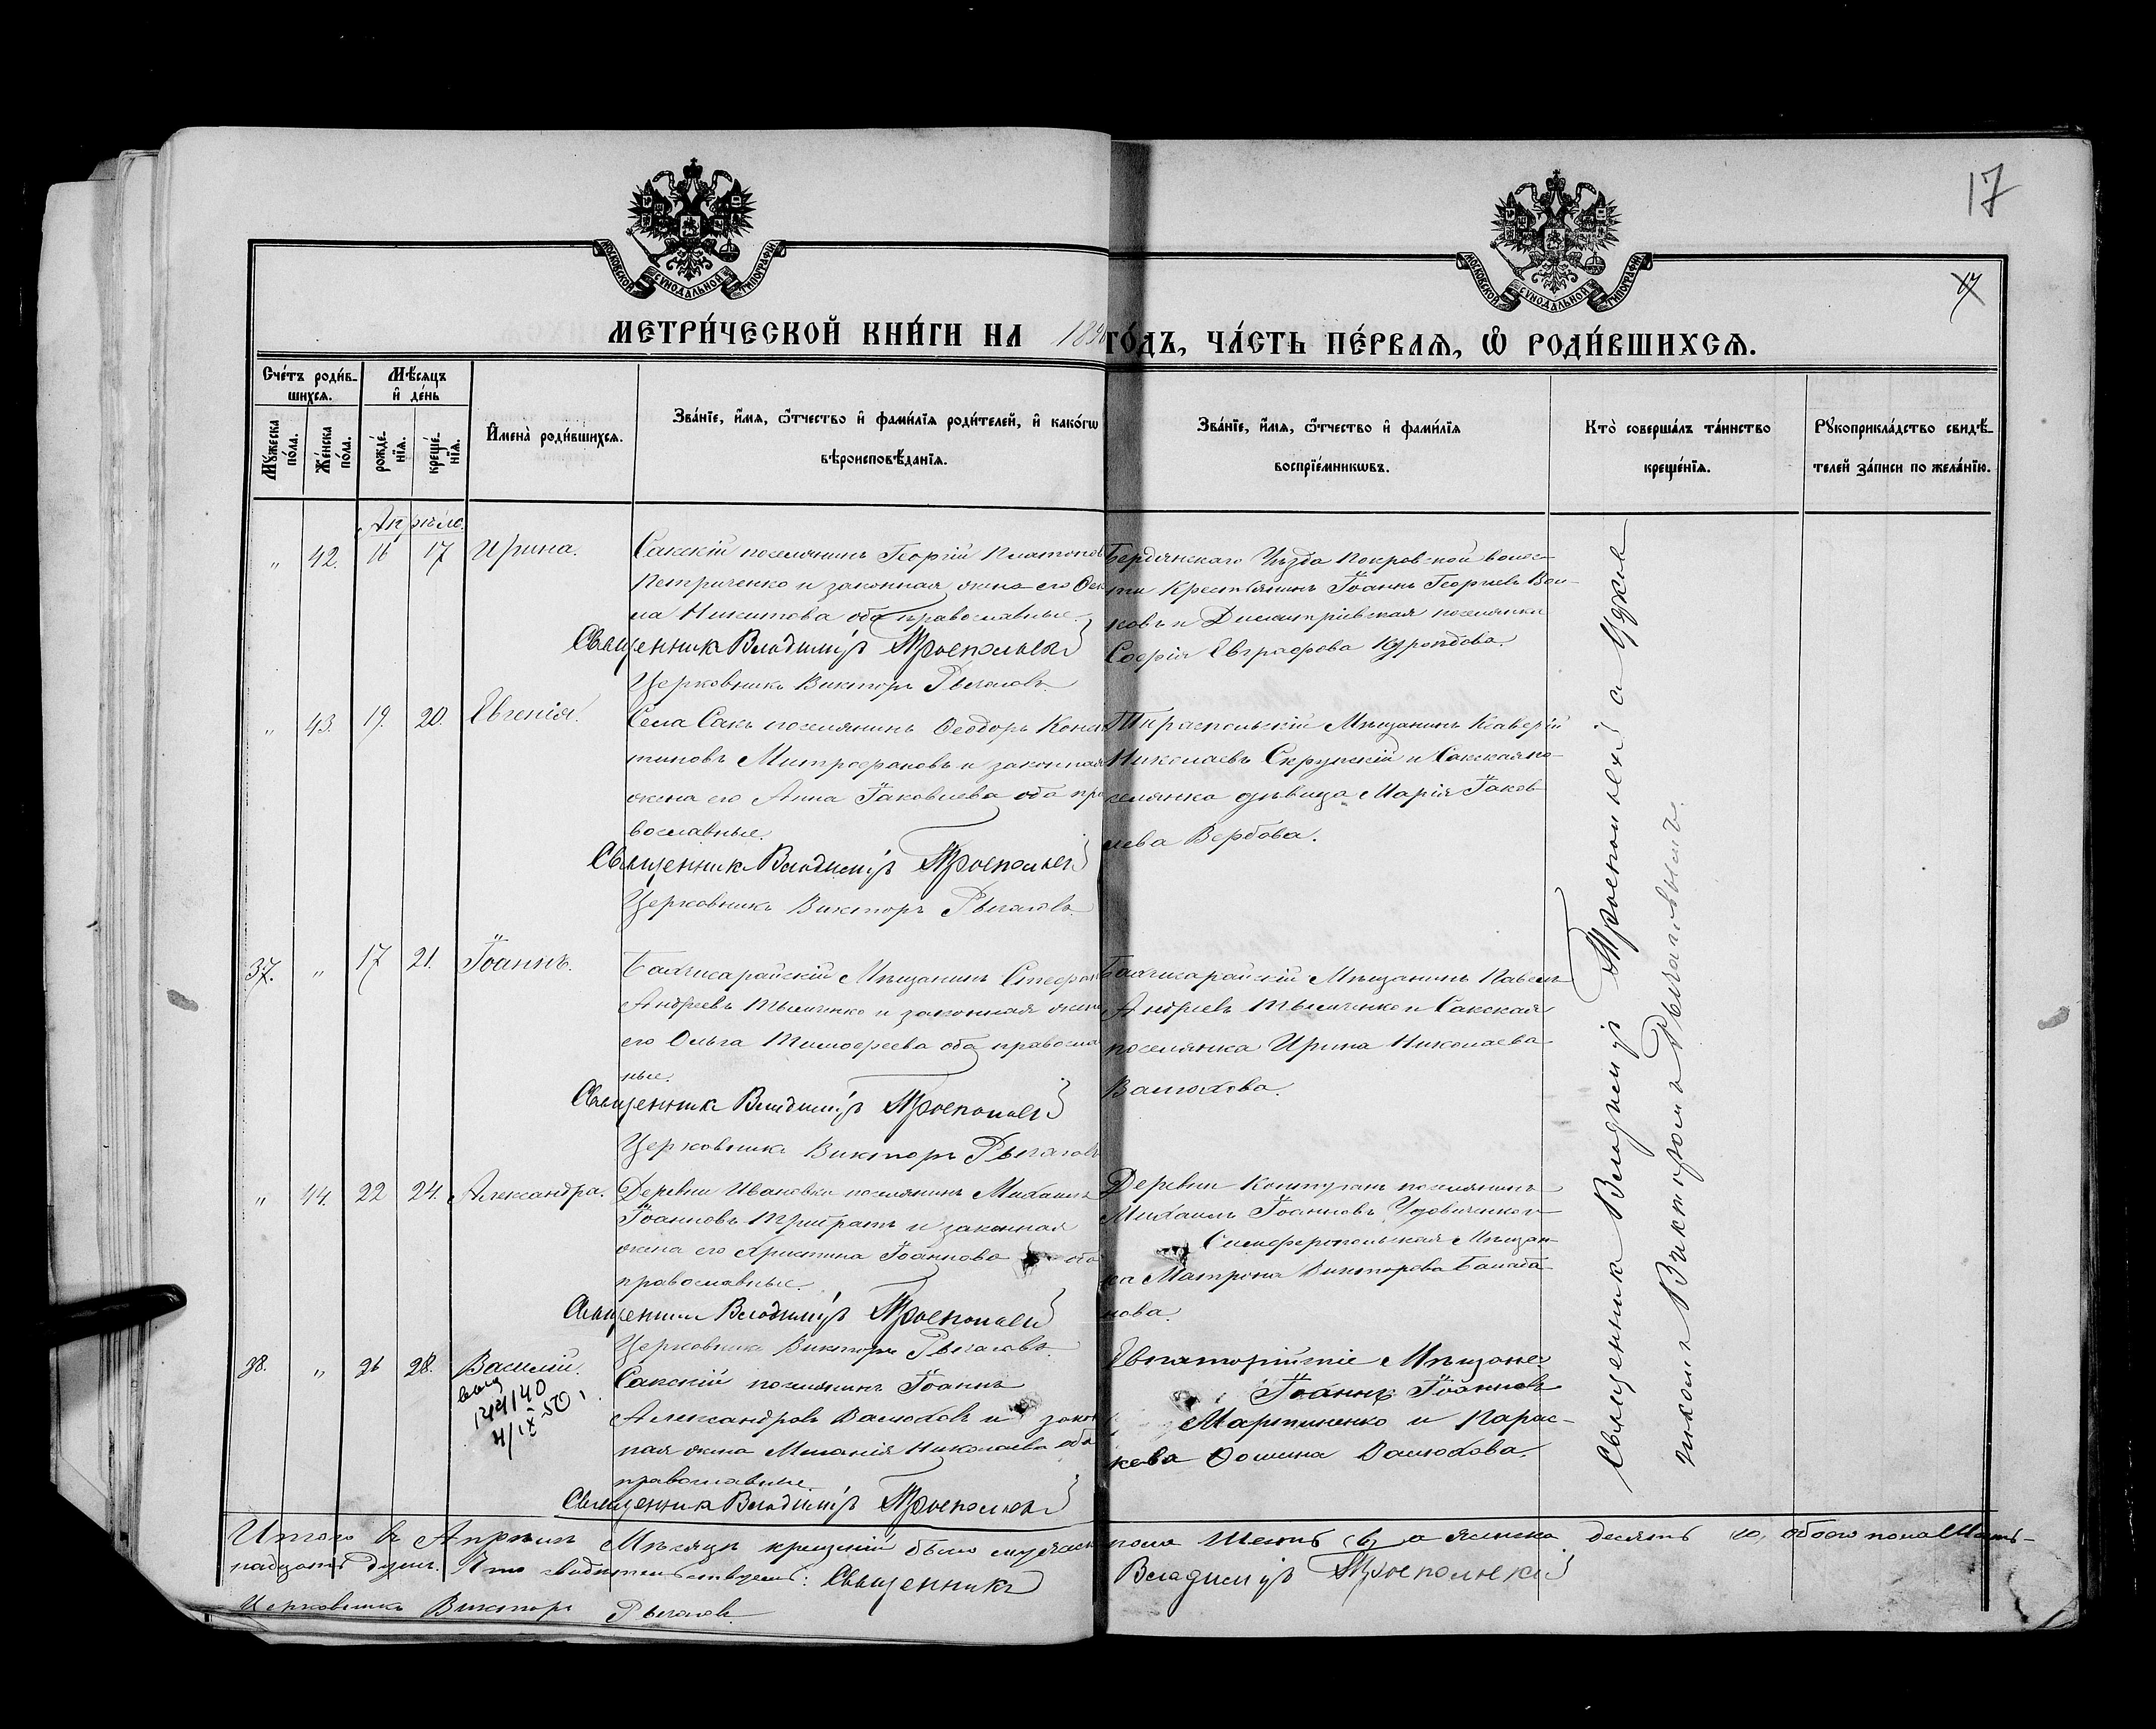 17
17
МОСКОВСКОЙ СѴНОДАЛЬНОЙ ТИПОГРАФІИ
МОСКОВСКОЙ СѴНОДАЛЬНОЙ ТИПОГРАФІИ
МЕТРИ́ЧЕСКОЙ КНИ́ГИ НА 189
ГО́ДЪ, ЧА́СТЬ ПЕ́РВАѦ, Ѡ҆ РОДИ́ВШИХСѦ.
Сче́тъ роди́в-
шихсѧ.
Мꙋ́жеска по́ла.
Же́нска по́ла.
Мѣ́сѧцъ
и҆ де́нь
рожде́-
нїѧ.
креще́-
нїѧ.
И҆мена̀ роди́вшихсѧ.
Зва́нїе, и҆́мѧ, ѻ҆́тчество и҆ фами́лїѧ роди́телей, и҆ како́гѡ
вѣроисповѣ́данїѧ.
Зва́нїе, и҆́мѧ, ѻ҆́тчество и҆ фами́лїѧ
воспрїе́мникѡвъ.
Кто̀ соверша́лъ та́инство
креще́нїѧ.
Рꙋкоприкла́дство свидѣ́-
телей за́писи по жела́нїю.
Апрѣль.
" 42. 16 17 Ирина.
Сакскій поселянинъ Георгій Платонов
Петриченко и законная жена его Фек
ла Никитова оба православные.
Священникъ Владиміръ Троепольскій
Церковникъ Викторъ Рыгаловъ.
Бердянскаго Уѣзда Покровской волос-
ти Крестьянинъ Іоаннъ Георгіевъ Вол-
ковъ и Димитріевская поселянка
Софія Евграфова
" 43. 19. 20. Евгенія.
Села Сакъ поселянинъ Ѳеодоръ Конст
тиновъ Митрофановъ и законная
жена его Анна Іаковлева оба пра
вославные.
Священникъ Владиміръ Троепольскій
Церковникъ Викторъ Рыгаловъ.
Тираспольскій Мѣщанинъ Ксаверій
Николаевъ Скрупскій и Сакская по-
селянка дѣвица Марія Іаков-
лева Вербова.
37. " 17 21. Іоаннъ.
Бахчисарайскій Мѣщанинъ Стефан
Андреевъ Тымченко и законная жена
его Ольга Тимофеева оба правосла
ные.
Священникъ Владиміръ Троепольскій
Церковникъ Викторъ Рыгаловъ
Бахчисарайскій Мѣщанинъ Павелъ
Андреевъ Тымченко и Сакская
поселянка Ирина Николаева
Валюхова.
" 44. 22 24. Александра.
Деревни Ивановки поселянинъ Михаилъ
Іоанновъ и законная
жена его Христина Іоаннова оба
православные.
Священникъ Владиміръ Троепольскій
Церковникъ Викторъ Рыгаловъ.
Деревни поселянинъ
Михаилъ Іоанновъ Удовиченко и
Симферопольская Мѣщан-
ка Матрона Викторова Балаба-
нова.
38. " 26 28. Василій.
144140
4/IX-50
Сакскій поселянинъ Іоаннъ
Александровъ Валюховъ и закон
ная жена Меланія Николаева оба
православные.
Священникъ Владиміръ Троепольскій
Евпаторійскіе Мѣщане
Іоаннъ Іоанновъ
Мартиненко и Парас-
кева Фомина Валюхова.
Священникъ Владиміръ Троепольскій съ
Викторомъ Рыгаловымъ.
Итого въ Апрѣлѣ Мѣсяцѣ крещеній было мужеск
пола Шесть (6) а женска десять 10, обоего пола Шест-
надцать душъ. Въ томъ свидѣтельствуемъ: Священникъ
Владиміръ Троепольскій
Церковникъ Викторъ Рыгаловъ.